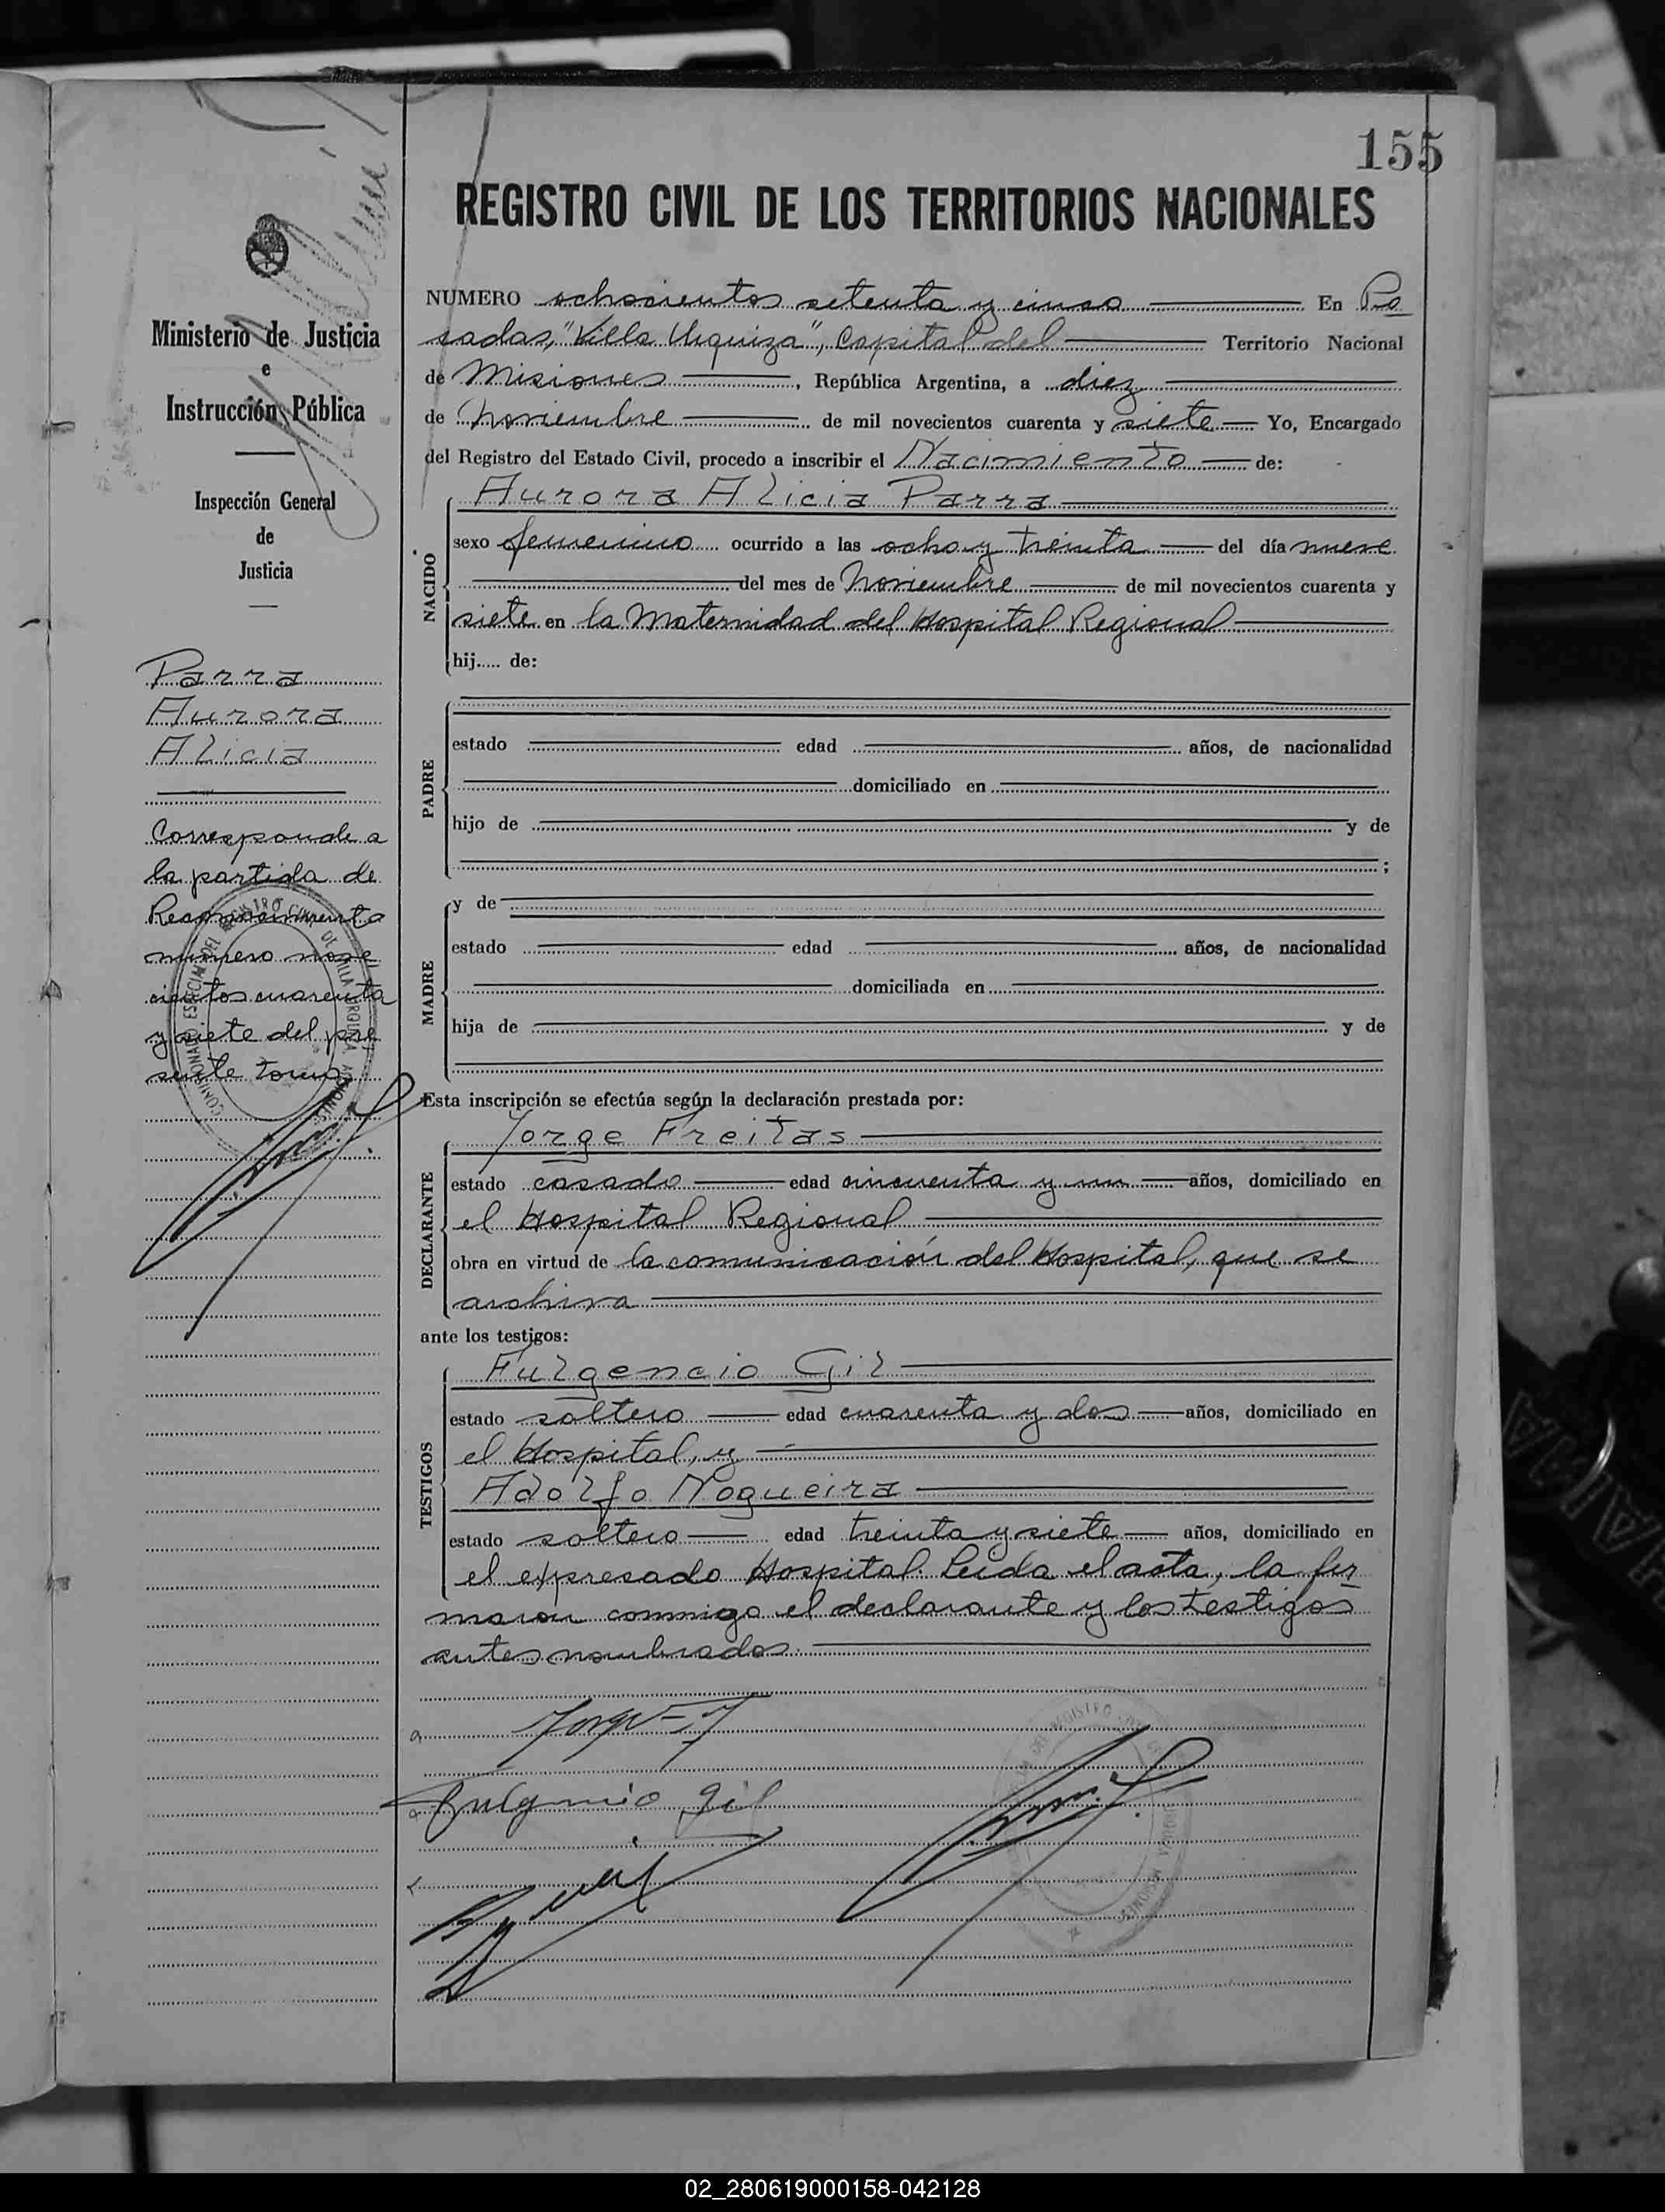 155
REGISTRO CIVIL DE LOS TERRITORIOS NACIONALES
Ministerio de Justicia
e
Instrucción Pública
Inspección General
de
Justicia
Parra
Aurora
Alicia
Corresponde a
la partida de
Reconocimiento
número nove
cientos cuarenta
y siete del pre
sente tomo
NUMERO ochocientos setenta y cinco En Po
sadas, "Villa Urquiza", Capital del Territorio Nacional
de Misiones, República Argentina, a diez
de Noviembre de mil novecientos cuarenta y siete Yo, Encargado
del Registro del Estado Civil, procedo a inscribir el Nacimiento de:
Aurora Alicia Parra
NACIDO
sexo femenino ocurrido a las ocho y treinta del día nueve
del mes de Noviembre de mil novecientos cuarenta y
siete en la Maternidad del Hospital Regional
hij..... de:
PADRE
estado edad años, de nacionalidad
domiciliado en
hijo de y de
;
MADRE
y de
estado edad años, de nacionalidad
domiciliada en
hija de y de
Esta inscripción se efectúa según la declaración prestada por:
Jorge Freitas
DECLARANTE
estado casado edad cincuenta y un años, domiciliado en
el Hospital Regional
obra en virtud de la comunicación del Hospital, que se
archiva
ante los testigos:
Fulgencio Gil
TESTIGOS
estado soltero edad cuarenta y dos años, domiciliado en
el Hospital, y
Adolfo Nogueira
estado soltero edad treinta y siete años, domiciliado en
el expresado Hospital. Leida el acta, la fir
maron conmigo el declarante y los testigos
antes nombrados.
Fulgencio Gil
02_280619000158-042128